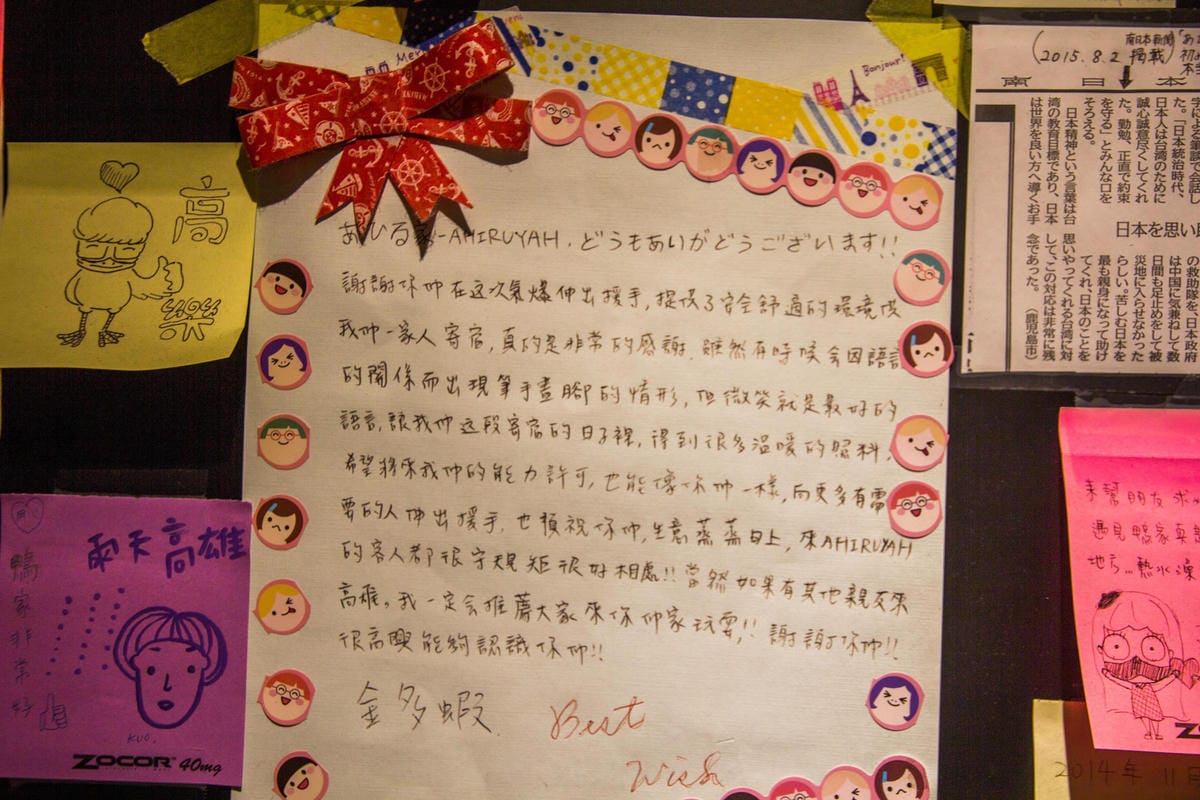 Bonjour!
あひる家-AHIRUYAH. どうもありがどうございます!!
謝謝你們在这次氣爆伸出援手,提供了安全舒適的環境供
我們一家人寄宿,真的是非常的感謝.雖然有時候会因語言
的關係而出現筆手畫腳的情形,但微笑就是最好的
語言,讓我們这段寄宿的日子裡,得到很多溫暖的照料,
希望將來我們的能力許可,也能像你們一樣,向更多有需
要的人伸出援手.也預祝你們,生意蒸蒸日上,來AHIRUYAH
的客人都很守規矩很好相處!!當然如果有其他親友來
高雄。我一定会推薦大家來你們家玩耍!!謝謝你們!!
很高興能夠認識你們!!
金多蝦
Best
Wish
高
樂
雨天高雄
鴨家非常好
KUO.
ZOCOR 40mg
(2015.8.2
南日本新聞
掲載)
南 日 本
字による筆談で会話し
た。「日本統治時代、
日本人は台湾のために
誠心誠意尽くしてくれ
た。勤勉、正直で約束
を守る」とみんな口を
そろえる。
日本精神という言葉は台
湾の教育目標であり、日本
は世界を良い方へ導くお手
日本を思い
の救助隊を、日本政府
は中国に気兼ねして数
日間も足止めをして被
災地に入らせなかった
らしい。苦しむ日本を
最も親身になって助け
てくれ、日本のことを
思いやってくれる台湾に対
して、この対応は非常に残
念であった。(鹿児島市)
来幫朋友求
遇見鴨家真
地方...熱水澡
2014年 11